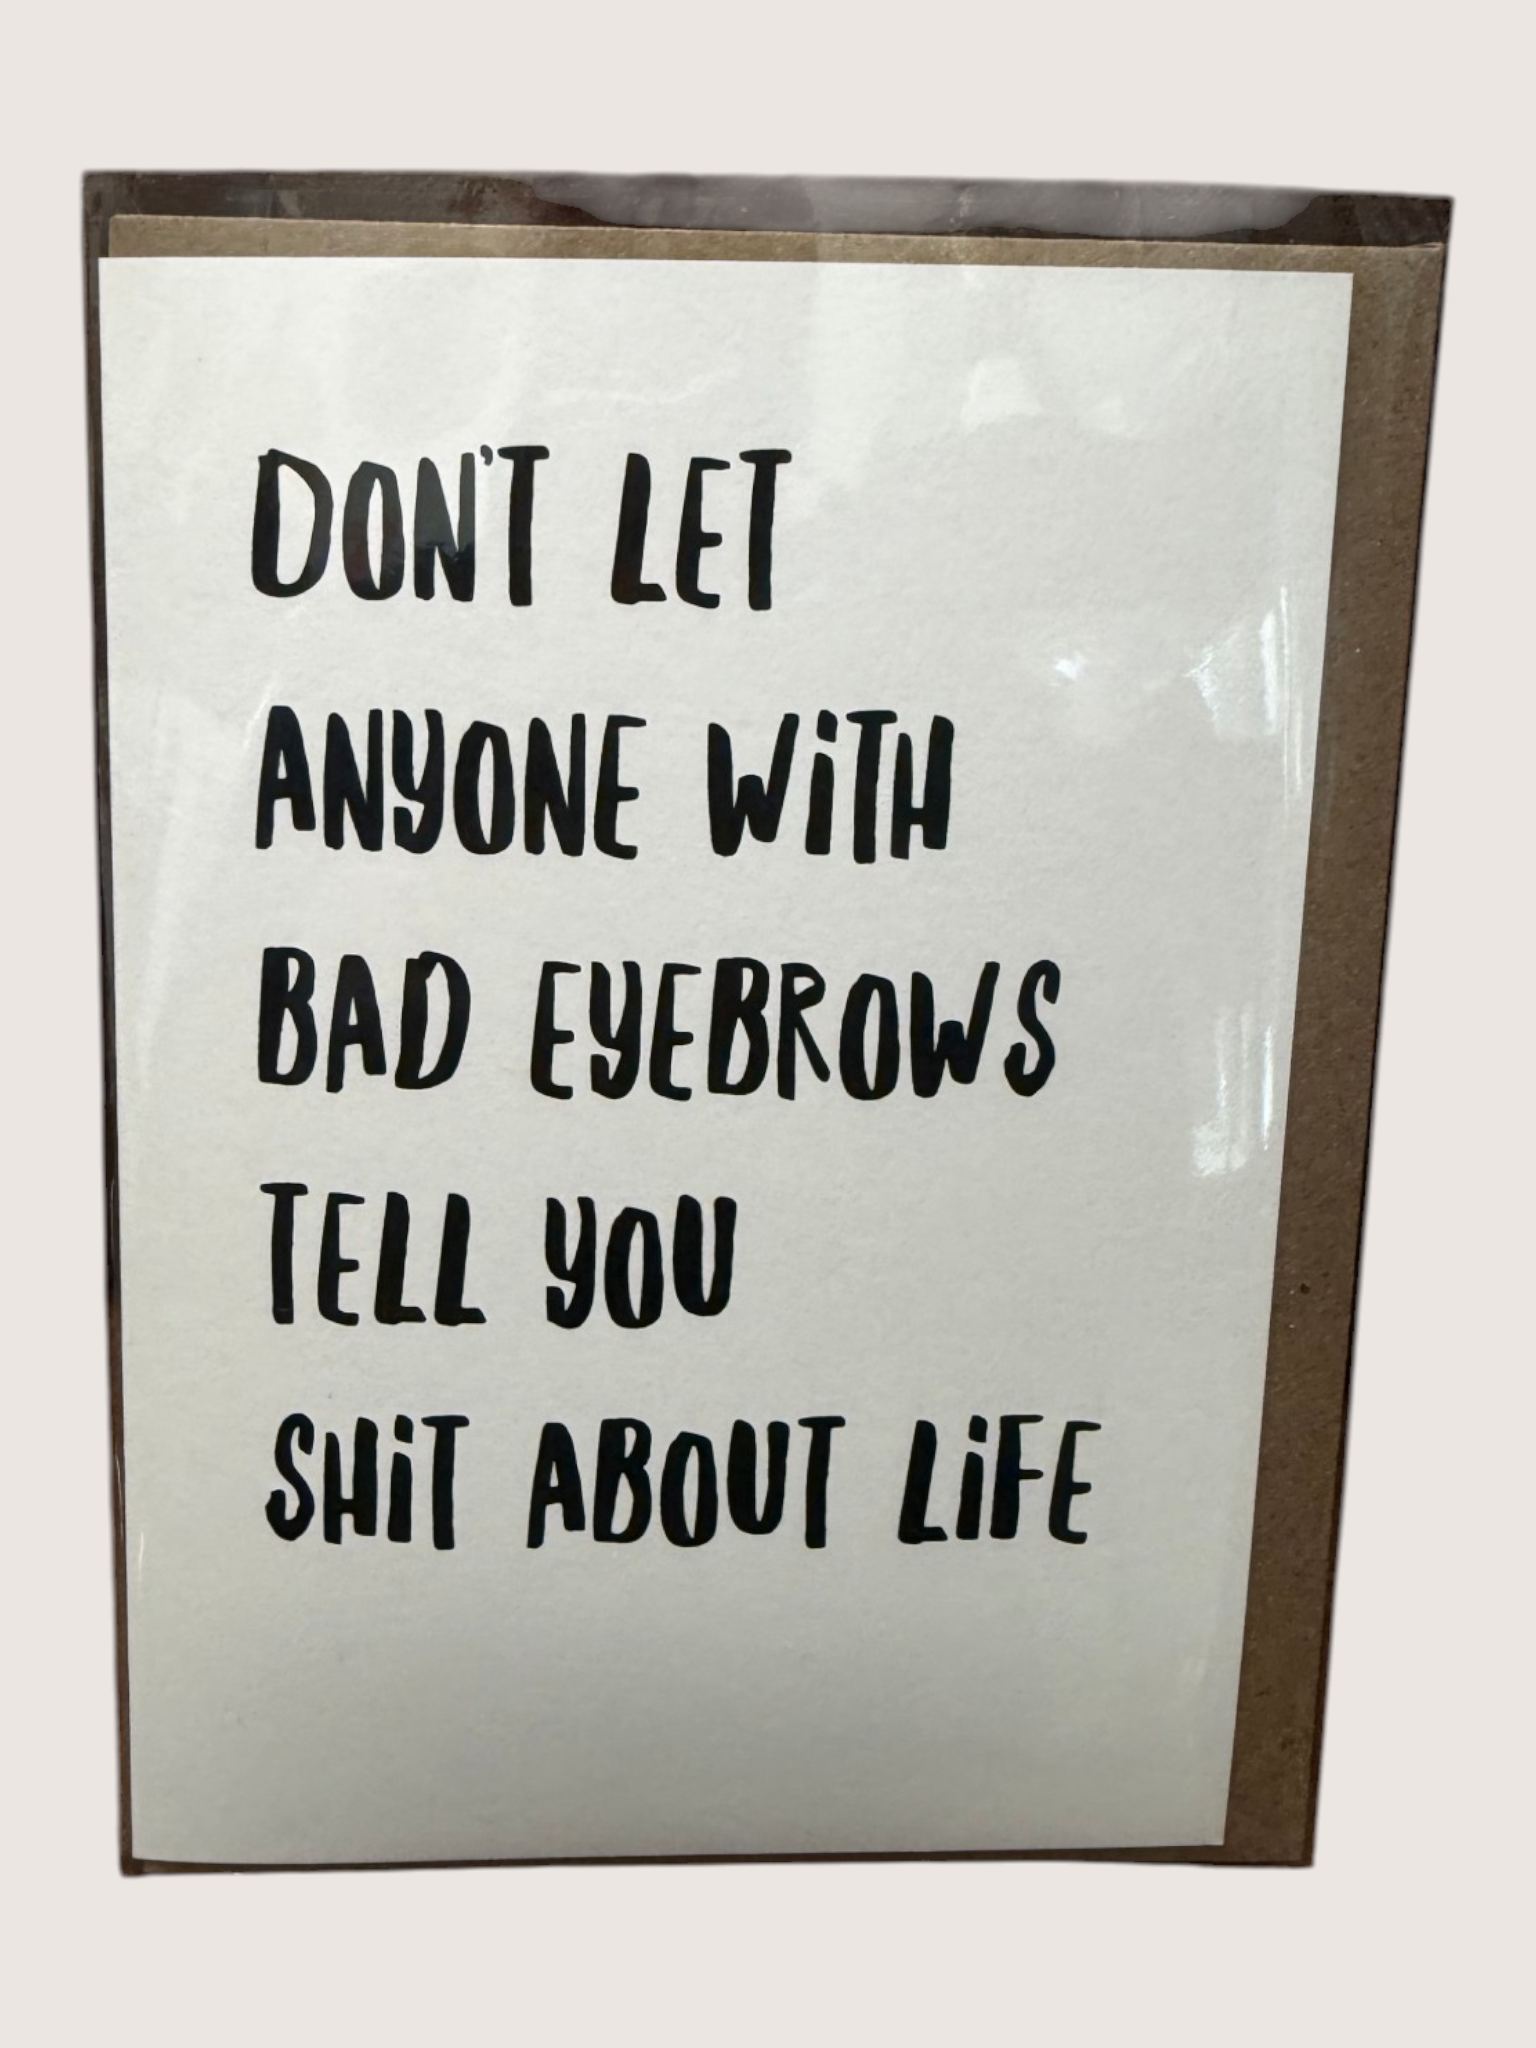 DON'T LET
ANYONE WiTH
BAD EYEBROWS
TELL YOU
SHiT ABOUT LiFE